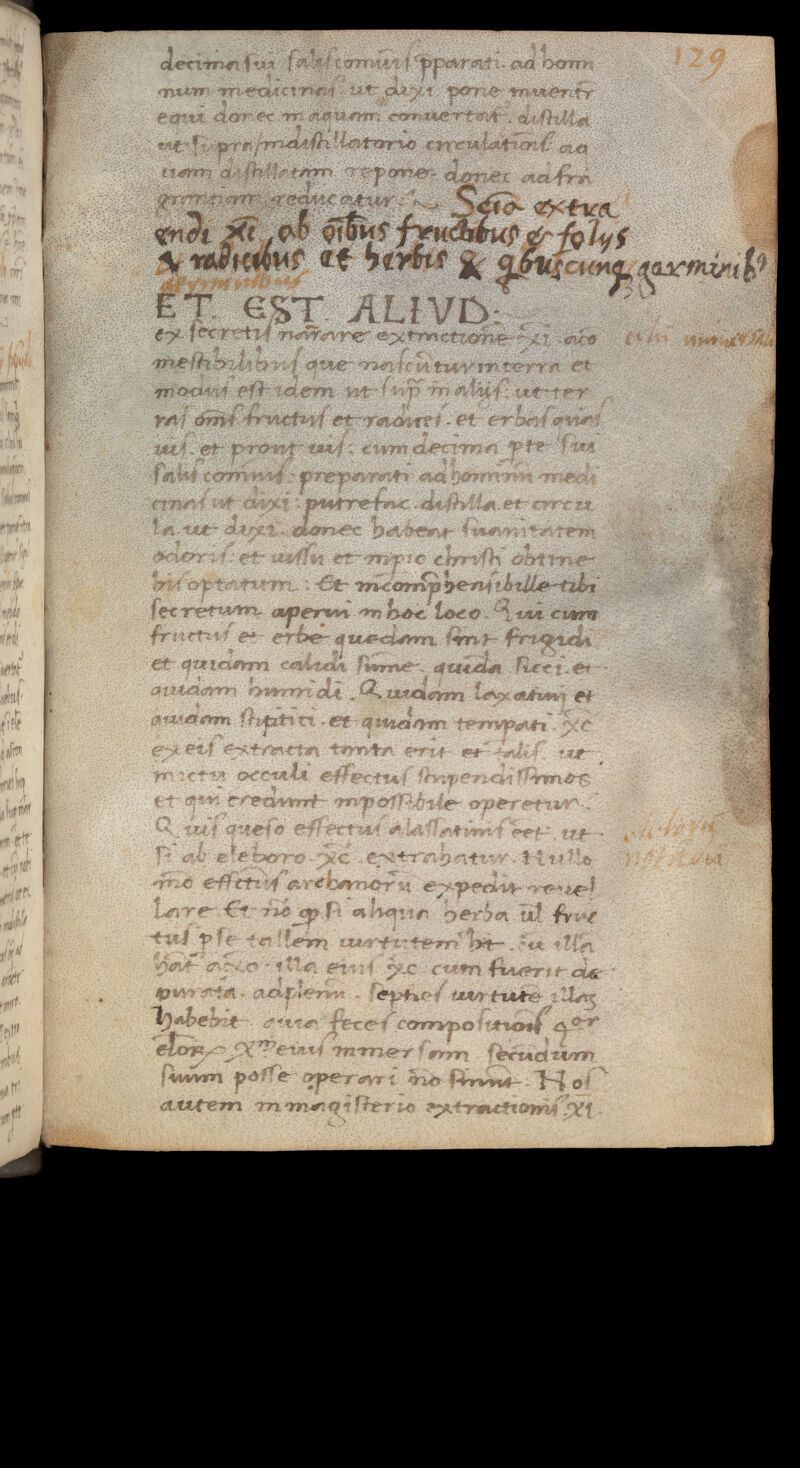 129
decima sui salis comuīs p̄parati. ad homī
num medicinas ut dixi pone inuentr̄
equi donec in aquam conuertat̄. distilla
ut supra in distillatorio circulationis. aq
uam distillatam repone. donec ad fra
grantiam reducatur. Scīa extra
endi xēī ab oībus fructibus & folijs
& radicibus et herbis & q̄buscunq̨ germinibꝰ
germinibus
ET EST ALIVD:
ex secretis narrare extractionē xēī a co
mestibilibus que nascūtur in terra et
modus est idem ut sup̄ in alijs. ut ter
ras om̄s fructus et radices. et erbas quas
uis. et prout uis. cum decima p̄te sui
salis comuis preparati ad hominū medi
cinas ut dixi. putrefac. distilla et circu
la. ut dixi. donec habeat suauitatem
odoris. et uissu et īnpio christi obtine
bis optatum. Et incomp̄hensibille tibi
secretum aperui in hoc loco. Qui cum
fructus et erbe quedam sint frigidi
et quidam calidi sūme. quidā sicci. et
quidam humidi. Quidam laxatiuj et
quidam stiptici. et quidam tempati. xēē
ex eis extracta tanta erit et talis. ut
in ictu occuli effectus stupendissimos
et qui credunt inpossibile operetur.
Quis queso effectus a lassatiuis eēt. ut
si ab eleboro xēē extrahatur. Nullo
mō effectus archanorū expedit reuel
lare. Et nō q̨ si aliqua herba ūl fruc
tus p se tallem uirtutem hīt. cū illa
illa eius xēē cum fuerit de
purata. ad plenū. septies uirtutē illaȝ
habebit quia feces compositionis qor
elorꝝ eius inmersam secūdum
suum posse operari nō sinūt. Nos
autem in magisterio extractionis xēī